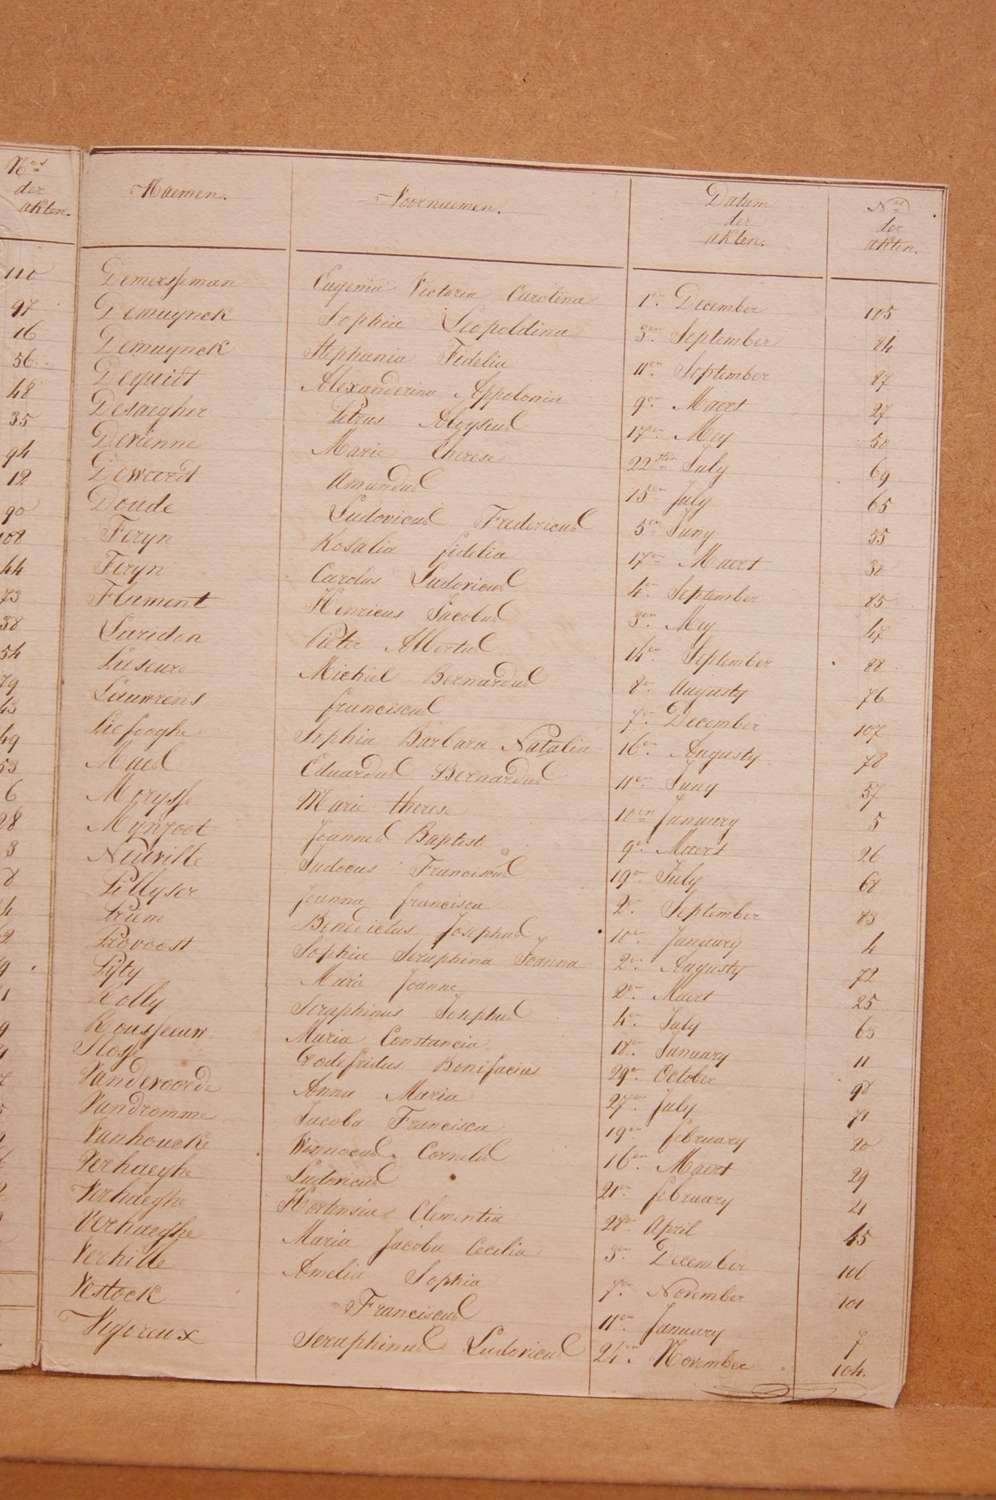 Nos der akten.
110
97
16
56
48
35
94
12
90
108
44
73
38
54
79
43
49
53
6
28
3
8
Naemen. Voornaemen. Datum der akten. Nos der akten.
Demersseman Eugenia Victoria Carolina 1en December 105
Demuynck Sophia Leopoldina 3en September 84
Demuynck Stephania Fidelia 11en September 87
Dequidt Alexanderina Appolonia 9en Maert 27
Desaegher Petrus Aloysius 17en Mey 50
Devienne Marie Therese 22sten July 69
Dewaerdt Amandus 13en July 65
Doude Ludovicus Fredericus 5en Juny 55
Feryn Rosalia fidelia 17en Maert 32
Feryn Carolus Ludovicus 4en September 85
Flament Henricus Jacobus 3en Mey 47
Laridan Pieter Albertus 14en September 88
Laseure Michiel Bernardus 8en Augusty 76
Lauwrens franciscus 7en December 107
Liefooghe Sophia Barbara Natalia 16en Augusty 78
Maes Eduardus Bernardus 11en Juny 57
Moryss Marie therese 10en January 5
Mynfoot Joannes Baptist 9en Maert 26
Neuville Judocus Franciscus 19en July 68
Pillyser Joanna francisca 2en September 83
Prum Benedictus Josephus 10en January 4
Provoost Sophia Seraphina Joanna 2en Augusty 72
Pyty Marie Joanne 2en Maert 25
Rolly Seraphinus Josephus 4en July 63
Rousseeuw Maria Constancia 18en January 11
Slosse Godefridus Bonifacius 29en October 98
Vandevoorde Anna Maria 27en July 71
Vandromme Jacoba Francisca 19en february 20
Vanhoucke Winnocus Cornelis 16en Maert 29
Verhaeghe Ludovicus 21en february 21
Verhaeghe Hortensia Clementia 28en April 45
Verhaeghe Maria Jacoba Cecilia 3en December 106
Verhille Amelia Sophia 7en November 101
Vestock Franciscus 11en January 7
Vigereux Seraphinus Ludovicus 24en November 104.